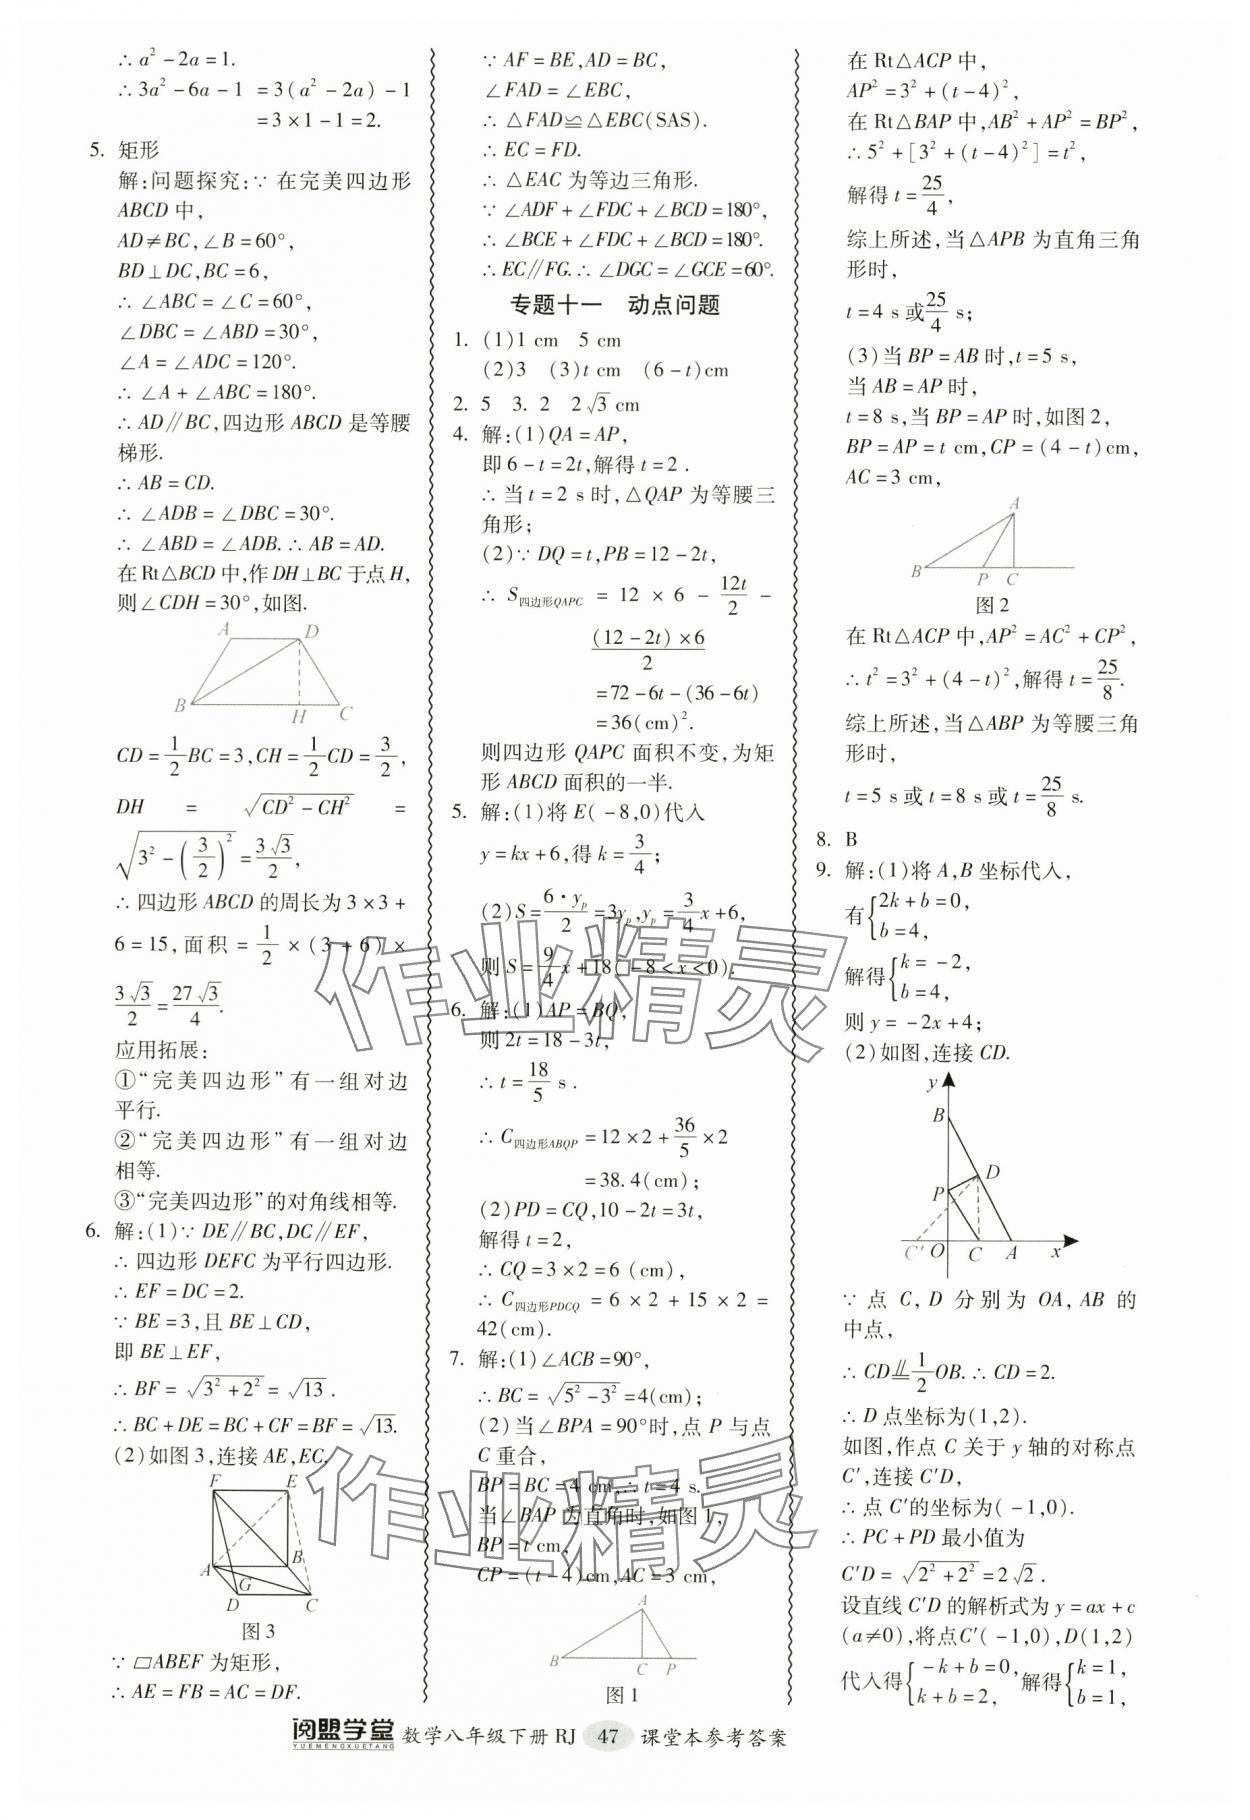 ∴ a²-2a=1.
∴ 3a²-6a-1 =3(a²-2a)-1
=3×1-1=2.
5. 矩形
解:问题探究:∵ 在完美四边形
ABCD 中,
AD≠BC,∠B=60°,
BD⊥DC,BC=6,
∴ ∠ABC=∠C=60°,
∠DBC=∠ABD=30°,
∠A=∠ADC=120°.
∴ ∠A+∠ABC=180°.
∴ AD∥BC,四边形 ABCD 是等腰
梯形.
∴ AB=CD.
∴ ∠ADB=∠DBC=30°.
∴ ∠ABD=∠ADB.∴ AB=AD.
在 Rt△BCD 中,作 DH⊥BC 于点 H,
则∠CDH=30°,如图.
A D
B H C
CD=1/2BC=3,CH=1/2CD=3/2,
DH = √(CD²-CH²) =
√(3²-(3/2)²)=3√3/2,
∴ 四边形 ABCD 的周长为 3×3+
6=15,面积=1/2×(3+6)×
3√3/2=27√3/4.
应用拓展:
①“完美四边形”有一组对边
平行.
②“完美四边形”有一组对边
相等.
③“完美四边形”的对角线相等.
6. 解:(1)∵ DE∥BC,DC∥EF,
∴ 四边形 DEFC 为平行四边形.
∴ EF=DC=2.
∵ BE=3,且 BE⊥CD,
即 BE⊥EF,
∴ BF=√(3²+2²)=√13.
∴ BC+DE=BC+CF=BF=√13.
(2)如图 3,连接 AE,EC.
F E
A B
G
D C
图 3
∵ ▱ABEF 为矩形,
∴ AE=FB=AC=DF.
∵ AF=BE,AD=BC,
∠FAD=∠EBC,
∴ △FAD≌△EBC(SAS).
∴ EC=FD.
∴ △EAC 为等边三角形.
∵ ∠ADF+∠FDC+∠BCD=180°,
∴ ∠BCE+∠FDC+∠BCD=180°.
∴ EC∥FG.∴ ∠DGC=∠GCE=60°.
专题十一 动点问题
1. (1)1 cm 5 cm
(2)3 (3)t cm (6-t)cm
2. 5 3. 2 2√3 cm
4. 解:(1)QA=AP,
即 6-t=2t,解得 t=2.
∴ 当 t=2 s 时,△QAP 为等腰三
角形;
(2)∵ DQ=t,PB=12-2t,
∴ S四边形QAPC = 12 × 6 - 12t/2 -
(12-2t)×6/2
=72-6t-(36-6t)
=36(cm)².
则四边形 QAPC 面积不变,为矩
形 ABCD 面积的一半.
5. 解:(1)将 E(-8,0)代入
y=kx+6,得 k=3/4;
(2)S=6·yₚ/2=3yₚ,yₚ=3/4x+6,
则 S=9/4x+18(-8<x<0).
6. 解:(1)AP=BQ,
则 2t=18-3t,
∴ t=18/5 s.
∴ C四边形ABQP=12×2+36/5×2
=38.4(cm);
(2)PD=CQ,10-2t=3t,
解得 t=2,
∴ CQ=3×2=6 (cm),
∴ C四边形PDCQ = 6 × 2 + 15 × 2 =
42(cm).
7. 解:(1)∠ACB=90°,
∴ BC=√(5²-3²)=4(cm);
(2)当∠BPA=90°时,点 P 与点
C 重合,
BP=BC=4 cm,∴ t=4 s.
当∠BAP 为直角时,如图 1,
BP=t cm,
CP=(t-4)cm,AC=3 cm,
A
B C P
图 1
在 Rt△ACP 中,
AP²=3²+(t-4)²,
在 Rt△BAP 中,AB²+AP²=BP²,
∴ 5²+[3²+(t-4)²]=t²,
解得 t=25/4,
综上所述,当△APB 为直角三角
形时,
t=4 s 或25/4 s;
(3)当 BP=AB 时,t=5 s,
当 AB=AP 时,
t=8 s,当 BP=AP 时,如图 2,
BP=AP=t cm,CP=(4-t)cm,
AC=3 cm,
A
B P C
图 2
在 Rt△ACP 中,AP²=AC²+CP²,
∴ t²=3²+(4-t)²,解得 t=25/8.
综上所述,当△ABP 为等腰三角
形时,
t=5 s 或 t=8 s 或 t=25/8 s.
8. B
9. 解:(1)将 A,B 坐标代入,
有{2k+b=0,
b=4,
解得{k=-2,
b=4,
则 y=-2x+4;
(2)如图,连接 CD.
y
B
D
P
C′ O C A x
∵ 点 C, D 分别为 OA, AB 的
中点,
∴ CD∥=1/2OB.∴ CD=2.
∴ D 点坐标为(1,2).
如图,作点 C 关于 y 轴的对称点
C′,连接 C′D,
∴ 点 C′的坐标为(-1,0).
∴ PC+PD 最小值为
C′D=√(2²+2²)=2√2.
设直线 C′D 的解析式为 y=ax+c
(a≠0),将点C′(-1,0),D(1,2)
代入得{-k+b=0,
k+b=2,
解得{k=1,
b=1,
阅盟学堂 YUEMENGXUETANG 数学八年级下册 RJ 47 课堂本参考答案
作业精灵
作业精灵